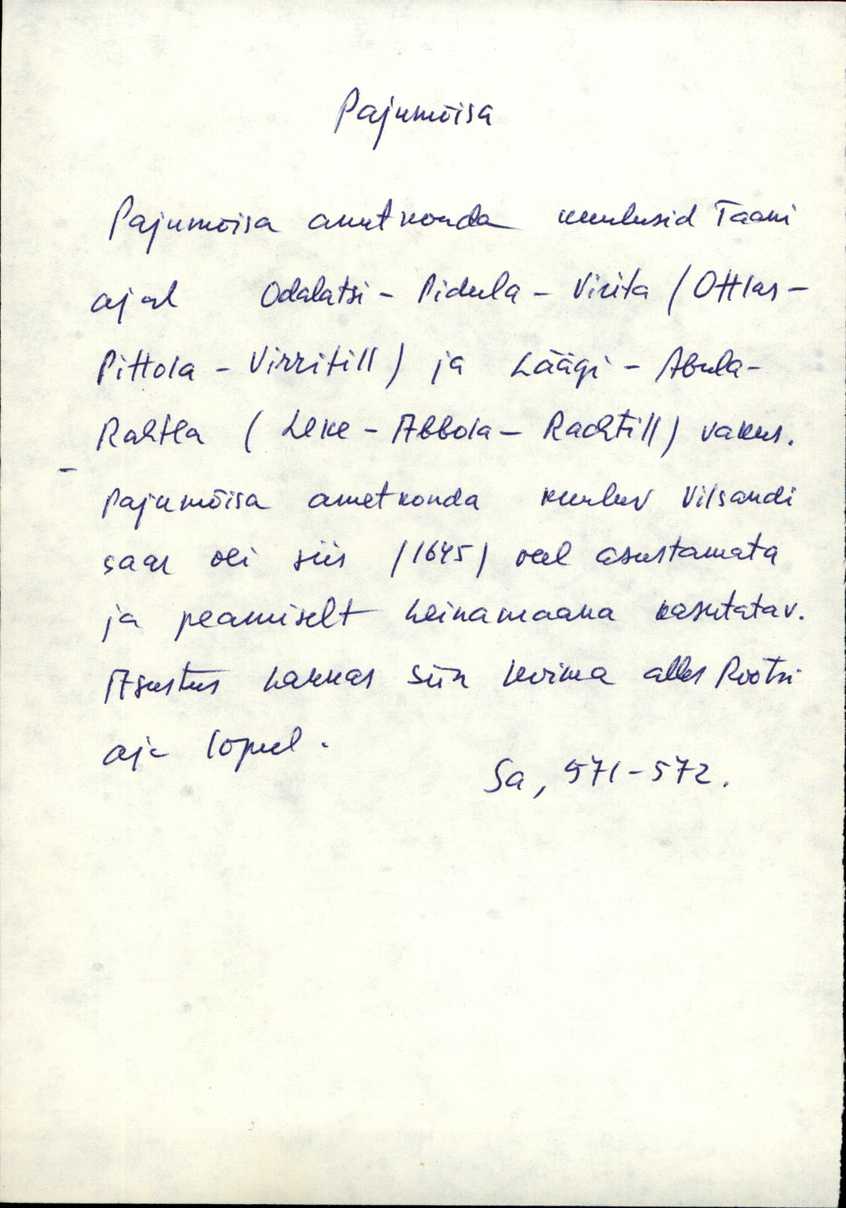 Pajumõisa
Pajumõisa ametkonda kuulusid Taani
ajal Odalatsi - Pidula - Virita (Ottlas-
Pittola - Virritill) ja Läägi - Abula-
Rahtla (Leke - Abbola - Rachtill) vakus.
- Pajumõisa ametkonda kuuluv Vilsandi
saar oli siis (1645) veel asustamata
ja peamiselt heinamaana kasutatav.
Asustus hakkas siin levima alles Rootsi
aja lõpul.
Sa, 571-572.